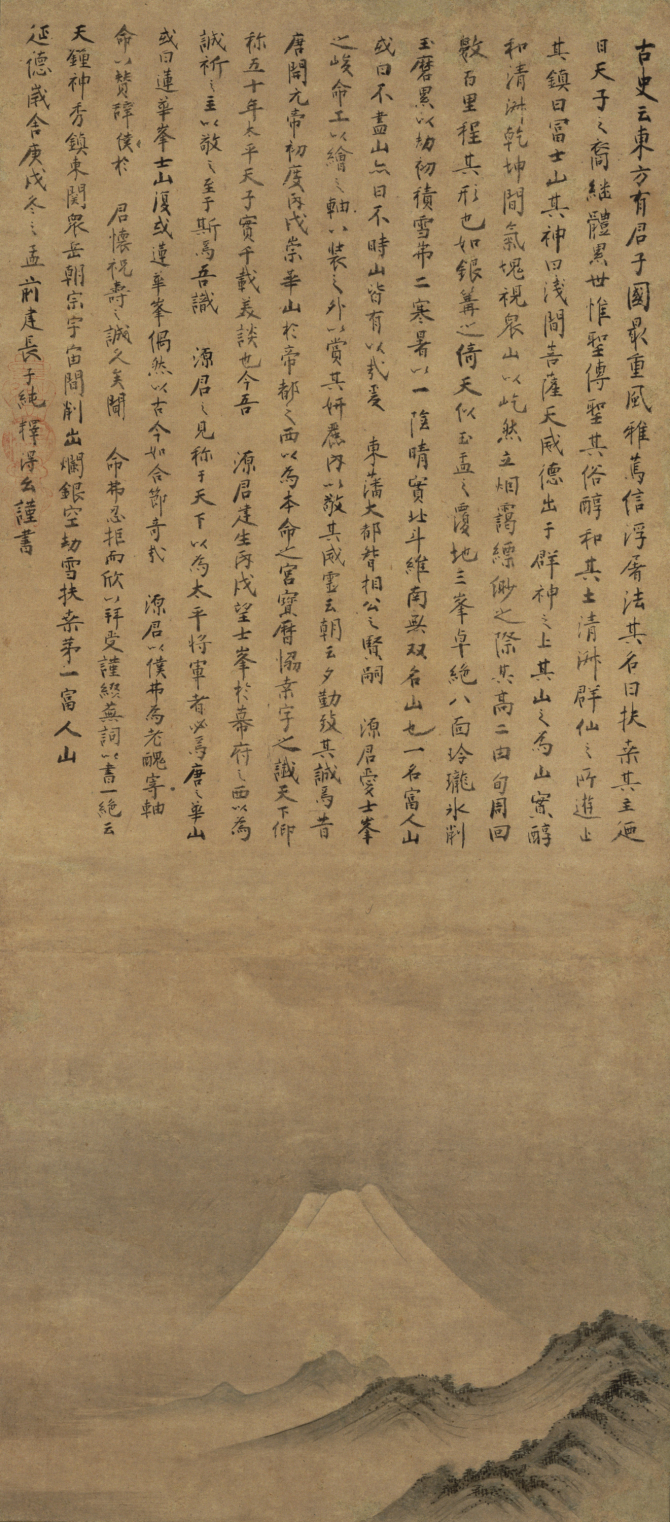 古史云東方有君子國最重風雅篤信浮屠法其名曰扶桒其主廼
日天子之裔継體累世惟聖傳聖其俗醇和其土清淋群仙之所遊止
其鎮曰冨士山其神曰浅間菩薩天威德出于群神之上其山之為山寔醇
和清淋乾坤間氣塊視衆山以屹然立烟靄縹緲之際其高二由旬周回
數百里程其形也如銀篝之倚天似玉盂之覆地三峯卓絶八面玲瓏氷削
玉磨累以劫初積雪弗二寒暑以一陰晴實北斗維南無双名山也一名富人山
或曰不盡山亦曰不時山皆有以哉爰 東藩大都督相公之賢嗣 源君愛士峯
之峻命工以繪之軸以装之外以賞其妍麗内以敬其威霊云朝云夕勤致其誠焉昔
唐開元帝初度丙戌崇華山於帝都之西以為本命之宮寳曆協桒字之讖天下仰
称五十年太平天子實千載美談也今吾 源君建生丙戌望士峯於幕府之西以為
誠祈之主以敬之至于斯焉吾識 源君之見称于天下以為太平将軍者必焉唐之華山
或曰蓮華峯士山復或蓮華峯偶然以古今如合節奇哉 源君以僕弗為老醜寄軸
命以賛辞僕於 君懐祝壽之誠久矣聞 命弗忍拒而欣以拜受謹綴蕪詞以書一絶云
天鍾神秀鎮東関衆岳朝宗宇宙間削出爛銀空劫雪扶桒第一富人山
延德歲舎庚戌冬之孟前建長子純釋得么謹書